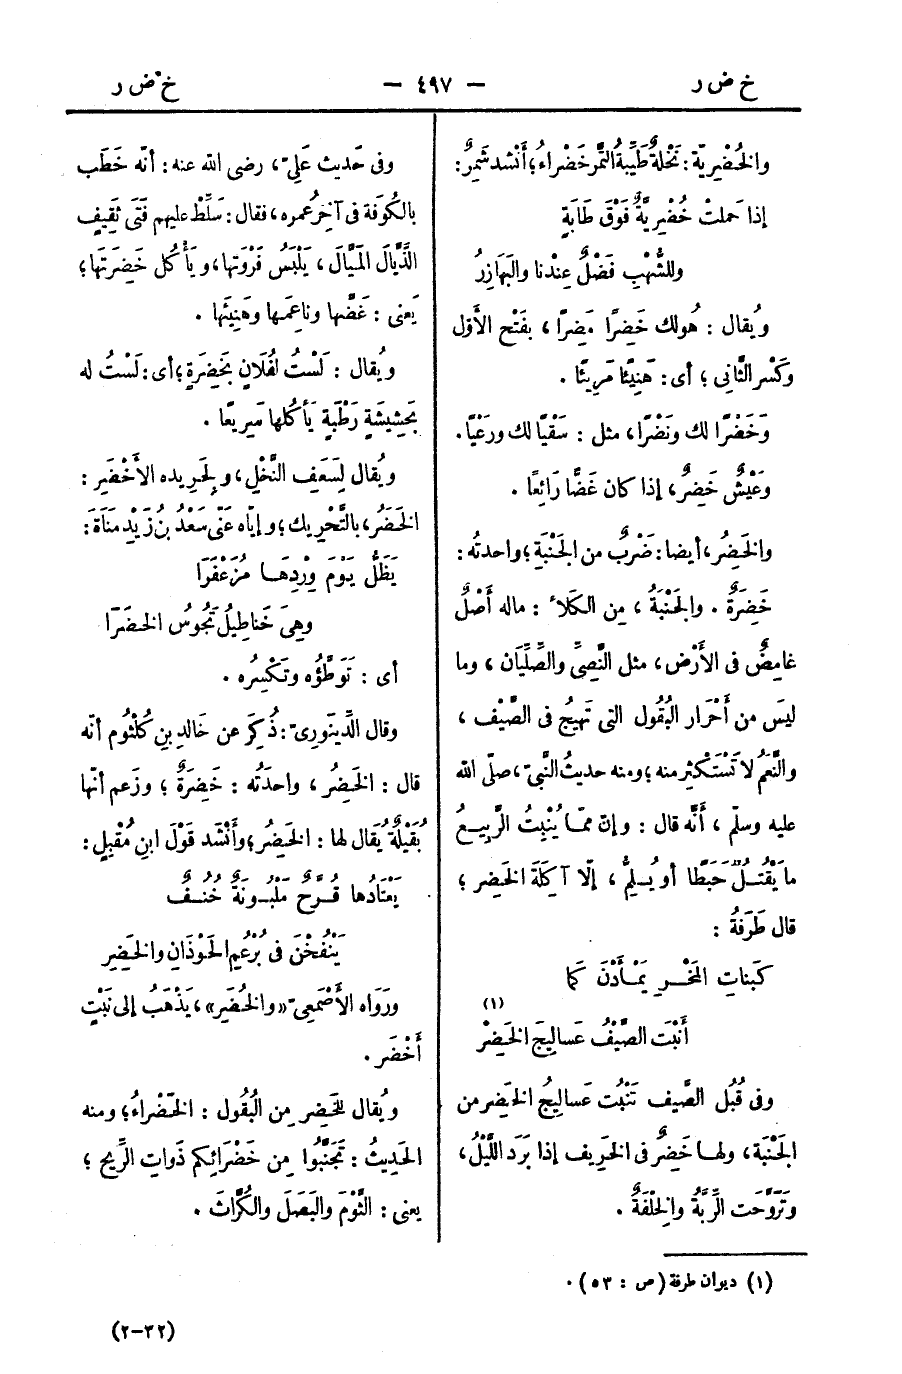 خ ض ر — ٤٩٧ — خ ض ر
والخُضْرِيّة: نَخْلةٌ طَيِّبةُ التَّمرِ خَضْراءُ؛ أَنْشد شَمِرٌ:
إذا حَملتْ خُضْرِيَّةٌ فَوْقَ طَابَةٍ
وللشُّهْبِ فَضْلٌ عِنْدنا والبَهَازِرُ
ويُقال: هُولك خَضِرًا مَضِرًا، بفَتْح الأَوّل
وكَسْر الثَّانى؛ أى: هَنِيئًا مَرِيئًا.
وخَضْرًا لك ونَضْرًا، مثل: سَقْيًا لك ورَعْيًا.
وعَيْشٌ خَضِرٌ، إذا كان غَضًّا رَائِعًا.
والخَضِرُ، أيضا: ضَرْبٌ من الجَنْبَةِ؛ واحدتُه:
خَضِرَةٌ. والجَنْبَةُ، مِن الكَلَأ: ماله أَصْلٌ
غامِضٌ فى الأَرْض، مثل النَّصِىِّ والصِّلِّيَان، وما
ليسَ من أَحْرار البُقُول التى تَهِيجُ فى الصَّيْف،
والنَّعَمُ لا تَسْتَكْثِر منه؛ ومنه حديثُ النَّبىّ، صلّى الله
عليه وسلّم، أَنَّه قال: وإنّ ممّا يُنْبِتُ الرَّبِيعُ
ما يَقْتُلُ حَبَطًا أو يُلِمُّ، إلّا آكِلَةَ الخَضِر؛
قال طَرَفةُ:
كَبَناتِ المَخْرِ يَمْأَدْنَ كَما
أَنْبَتَ الصَّيْفُ عَسالِيجَ الخَضِرْ (١)
وفى قُبُل الصَّيف تَنْبُت عَسالِيجُ الخَضِر من
الجَنْبَة، ولها خَضِرٌ فى الخَرِيف إذا بَرَد اللَّيْلُ،
وتَرَوَّحَت الرِّبَّةُ والخِلْفَةُ.
(١) ديوان طرفة (ص: ٥٣).
وفى حَديث عَلِىّ، رضى الله عنه: أنّه خَطَب
بالكُوفَة فى آخِر عُمره، فقال: سَلِّطْ عليهم فَتَى ثَقِيفٍ
الذَّيَّالَ المَيَّالَ، يَلْبَسُ فَرْوَتَها، ويَأْكُل خَضِرَتَها؛
يَعنى: غَضَّها وناعِمَها وهَنِيئَها.
ويُقال: لَسْتُ لفُلَان بخَضِرَةٍ؛ أى: لَسْتُ له
بحَشِيشَةٍ رَطْبةٍ يَأكُلها سَرِيعًا.
ويُقال لِسَعَفِ النَّخْلِ، ولِجَرِيده الأَخْضَرِ:
الخَضَرُ، بالتَّحْرِيك؛ وإيّاه عَنَى سَعْدُ بنُ زَيْدِ مَنَاةَ:
يَظَلُّ يَوْمَ وِرْدِهَا مُزَعْفَرَا
وهِىَ خَناطِيلُ تَجُوسُ الخَضَرَا
أى: تَوَطَّؤُه وتَكْسِرُه.
وقال الدِّينَورِىّ: ذُكِرَ عن خَالدِ بنِ كُلْثُوم أنّه
قال: الخَضِرُ، واحدَتُه: خَضِرَةٌ؛ وزَعم أنّها
بُقَيْلَةٌ يُقال لها: الخَضِرُ؛ وأَنْشد قَوْلَ ابنِ مُقْبِلٍ:
يَعْتَادُها قُرَّحٌ مَلْبُونَةٌ خُنُفٌ
يَنْفُخْنَ فى بُرْعُمِ الحَوْذَانِ والخَضِرِ
ورَوَاه الأَصْمَعِىّ «والخُضَرِ»، يَذْهَبُ إلى نَبْتٍ
أَخْضَر.
ويُقال للخَضِر مِن البُقُول: الخَضْراءُ؛ ومنه
الحَدِيثُ: تَجَنَّبُوا مِن خَضْرائِكم ذَواتِ الرِّيح؛
يعنى: الثُّوْمَ والبَصَلَ والكُرَّاثَ.
(٣٢-٢)